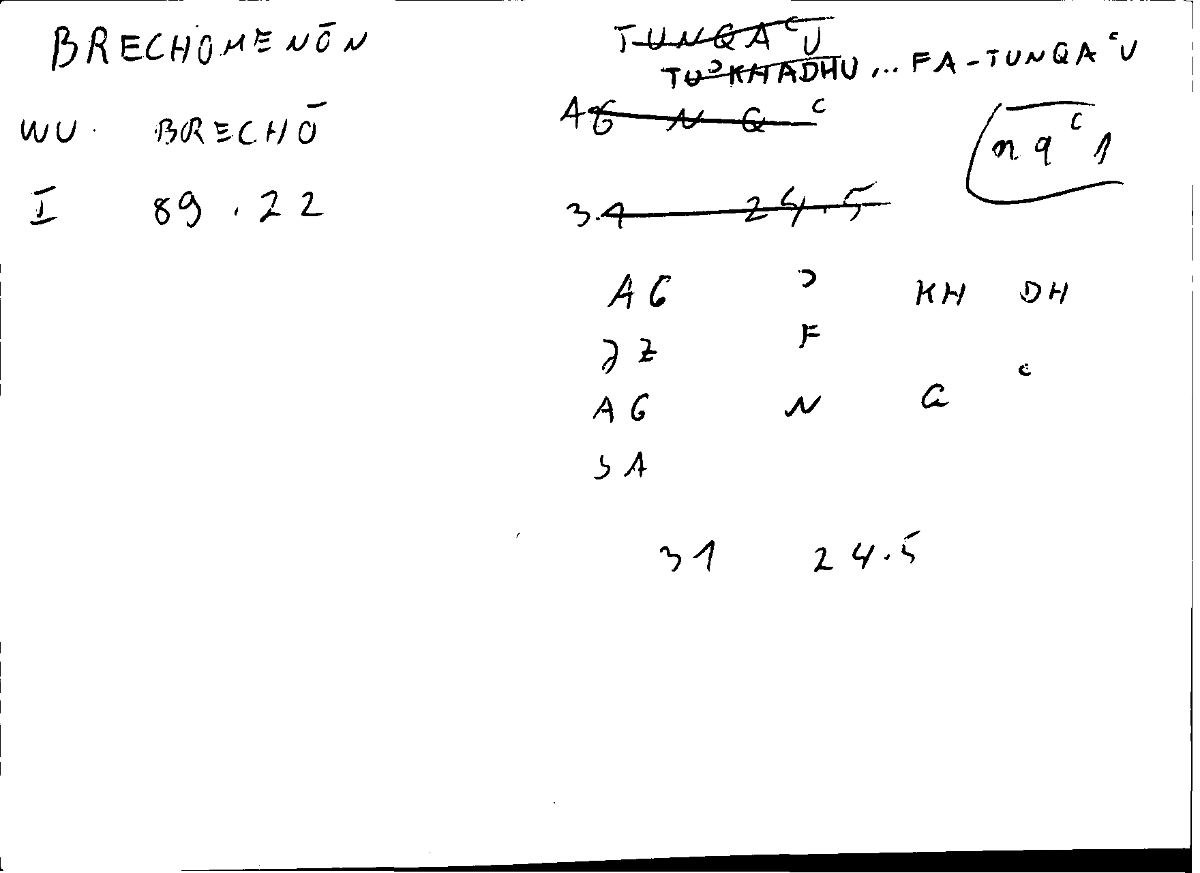 BRECHOMENŌN
WU. BRECHŌ
I 89.22
TUNQAʿU
TUʾKHADHU ... FA-TUNQAʿU
AG N Q ʿ
nqʿ1
31 24.5
AG ʾ KH DH
F
AG N Q ʿ
31 24.5